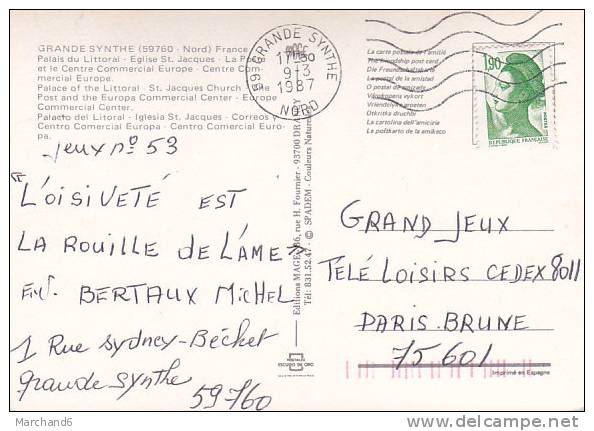 GRANDE SYNTHE (59760 - Nord) France
Palais du Littoral - Eglise St. Jacques - La Poste
et le Centre Commercial Europe - Centre Com-
mercial Europe.
Palace of the Littoral - St. Jacques Church
Post and the Europa Commercial Center - Europe
Commercial Center.
Palacto del Litoral - Iglesia St. Jacques - Correos
Centro Comercial Europa - Centro Comercial Euro-
pa.
59 GRANDE SYNTHE
9-3
1987
NORD
La carte postale de l'amitié
The friendship post card
Die Freundschaftskarte
La postal de la amistad
O postal da amizade
Vänskapens vykort
Vriendelyke groeten
Otkritka druzhbi
La cartolina dell'amicizia
La poŝtkarto de la amikeco
1,90
REPUBLIQUE FRANÇAISE
Jeux n° 53
"L'OISIVETÉ EST
LA ROUILLE DE L'ÂME"
ENV. BERTAUX MICHEL
1 Rue SYDNEY-BÉCHET
grande SYNTHE
59760
Tél: 831.52.47 - © SPADEM - Couleurs Nature
GRAND JEUX
TÉLÉ LOISIRS CEDEX 8011
PARIS BRUNE
75601
POSTALES
ESCUDO DE ORO
Imprimé en Espagne
Marchand6
http://www.delcampe.net